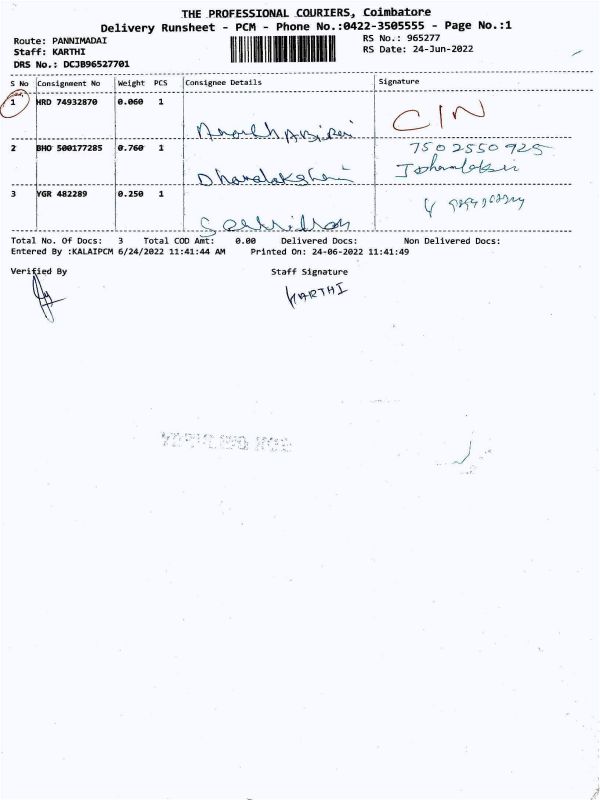 THE PROFESSIONAL COURIERS, Coimbatore
Delivery Runsheet - PCM - Phone No.:0422-3505555 - Page No.:1
Route: PANNIMADAI RS No.: 965277
Staff: KARTHI RS Date: 24-Jun-2022
DRS No.: DCJB96527701
S No Consignment No Weight PCS Consignee Details Signature
1 HRD 74932870 0.060 1
CIN
2 BHO 500177285 0.760 1 7502550925
Dhanalakshmi
3 YGR 482289 0.250 1
Total No. Of Docs: 3 Total COD Amt: 0.00 Delivered Docs: Non Delivered Docs:
Entered By :KALAIPCM 6/24/2022 11:41:44 AM Printed On: 24-06-2022 11:41:49
Verified By Staff Signature
KARTHI